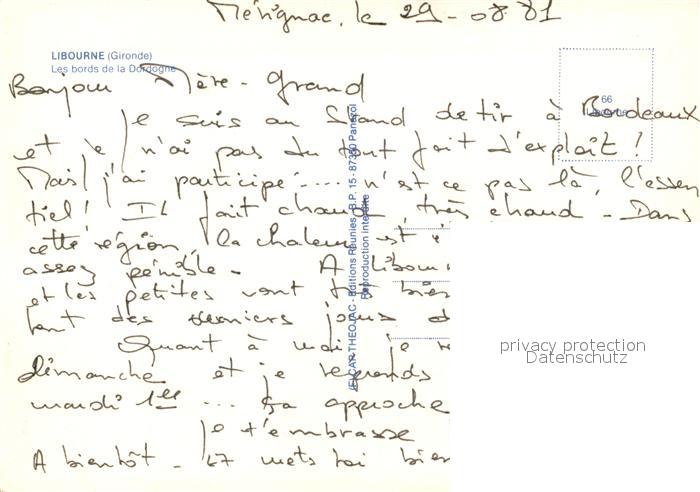 Mérignac, le 29-08-81
LIBOURNE (Gironde)
Les bords de la Dordogne
66
Bonjour Mère-Grand
Je suis au Stand de tir à Bordeaux
et je n'ai pas du tout fait d'exploit !
Mais j'ai participé .... n'est ce pas là, l'essen
tiel ! Il fait chaud, très chaud - Dans
cette région, la chaleur est
assez pénible - A Libour
et les petites vont bien
tent des derniers jours d
Quant à moi, je re
dimanche et je reprends
mardi 1er ... ça approche
Je t'embrasse
A bientôt - mets toi bien
IEL CAP-THEOJAC - Editions Réunies - B.P. 15 - 87350 Panazol
Reproduction interdite
privacy protection
Datenschutz